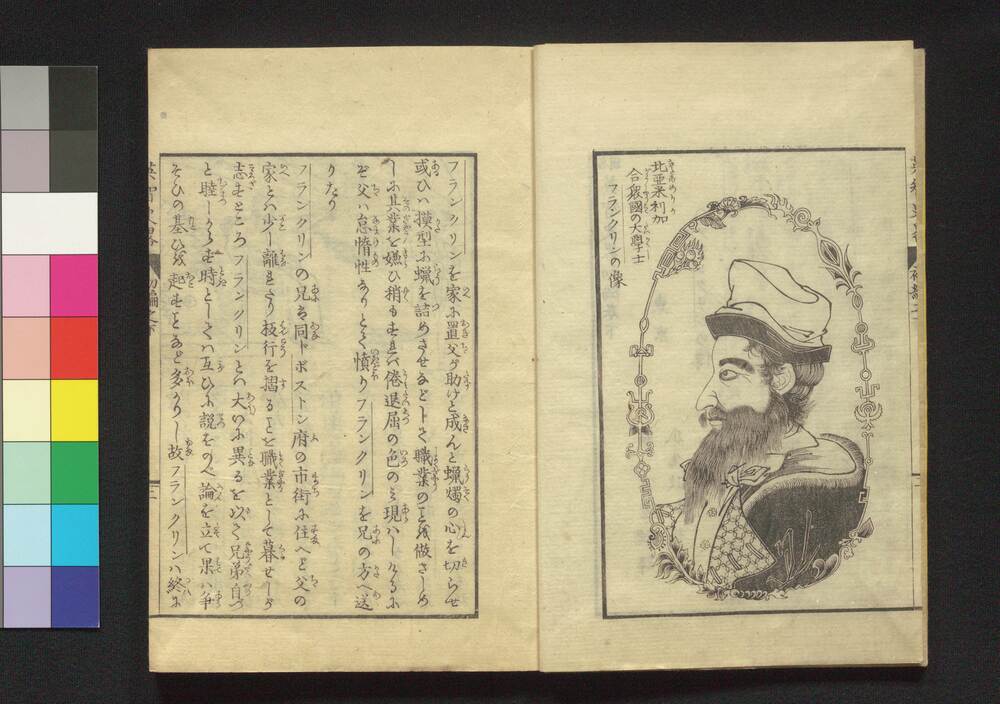 北亜米利加
合衆國の大學士
フランクリンの像
フランクリンを家ふ置父が助けと成んと蝋燭の心を切らせ
或ひハ摸型ふ蝋を詰めさせなどトて職業のミを做さしめ
しふ其業を嫌ひ稍もすれハ倦退屈の色のミ現ハしけるふ
ぞ父ハ怠惰性なりとて憤りフランクリンを兄の方へ送
りたり
フランクリンの兄も同トボストン府の市街ふ住へど父の
家とハ少し離れたり板行を摺ることを職業として暮せしが
志すところフランクリンとハ大いふ異るを以て兄弟自づ
と睦しからず時としてハ互ひふ説をのべ論を立て果ハ争
そひの基ひを起すことなど多かりし故フランクリンハ終ふ